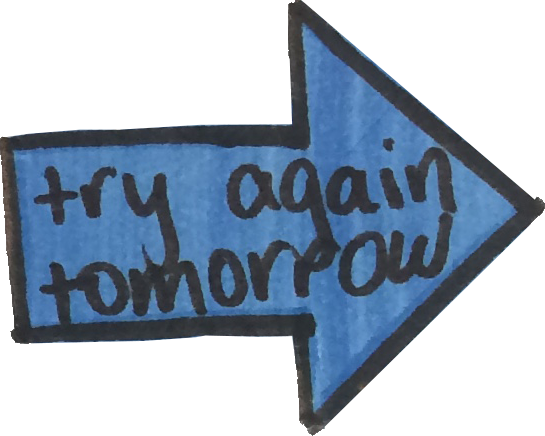 try again
tomorrow